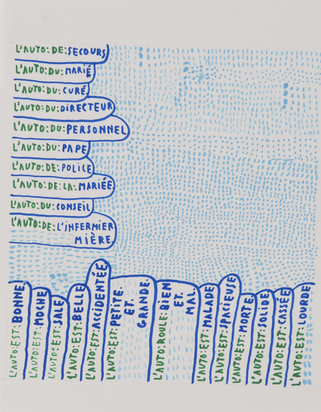 L'AUTO:DE:SECOURS
L'AUTO:DU:MARIÉ
L'AUTO:DU:CURÉ
L'AUTO:DU:DIRECTEUR
L'AUTO:DU:PERSONNEL
L'AUTO:DU:PAPE
L'AUTO:DE:POLICE
L'AUTO:DE:LA:MARIÉE
L'AUTO:DU:CONSEIL
L'AUTO:DE:L'INFERMIER
MIÈRE
L'AUTO:EST:BONNE
L'AUTO:EST:MOCHE
L'AUTO:EST:SALE
L'AUTO:EST:BELLE
L'AUTO:EST:ACCIDENTÉE
L'AUTO:EST:PETITE
ET
GRANDE
L'AUTO:ROULE:BIEN
ET
MAL
L'AUTO:EST:MALADE
L'AUTO:EST:SPACIEUSE
L'AUTO:EST:MORTE
L'AUTO:EST:SOLIDE
L'AUTO:EST:CASSÉE
L'AUTO:EST:LOURDE